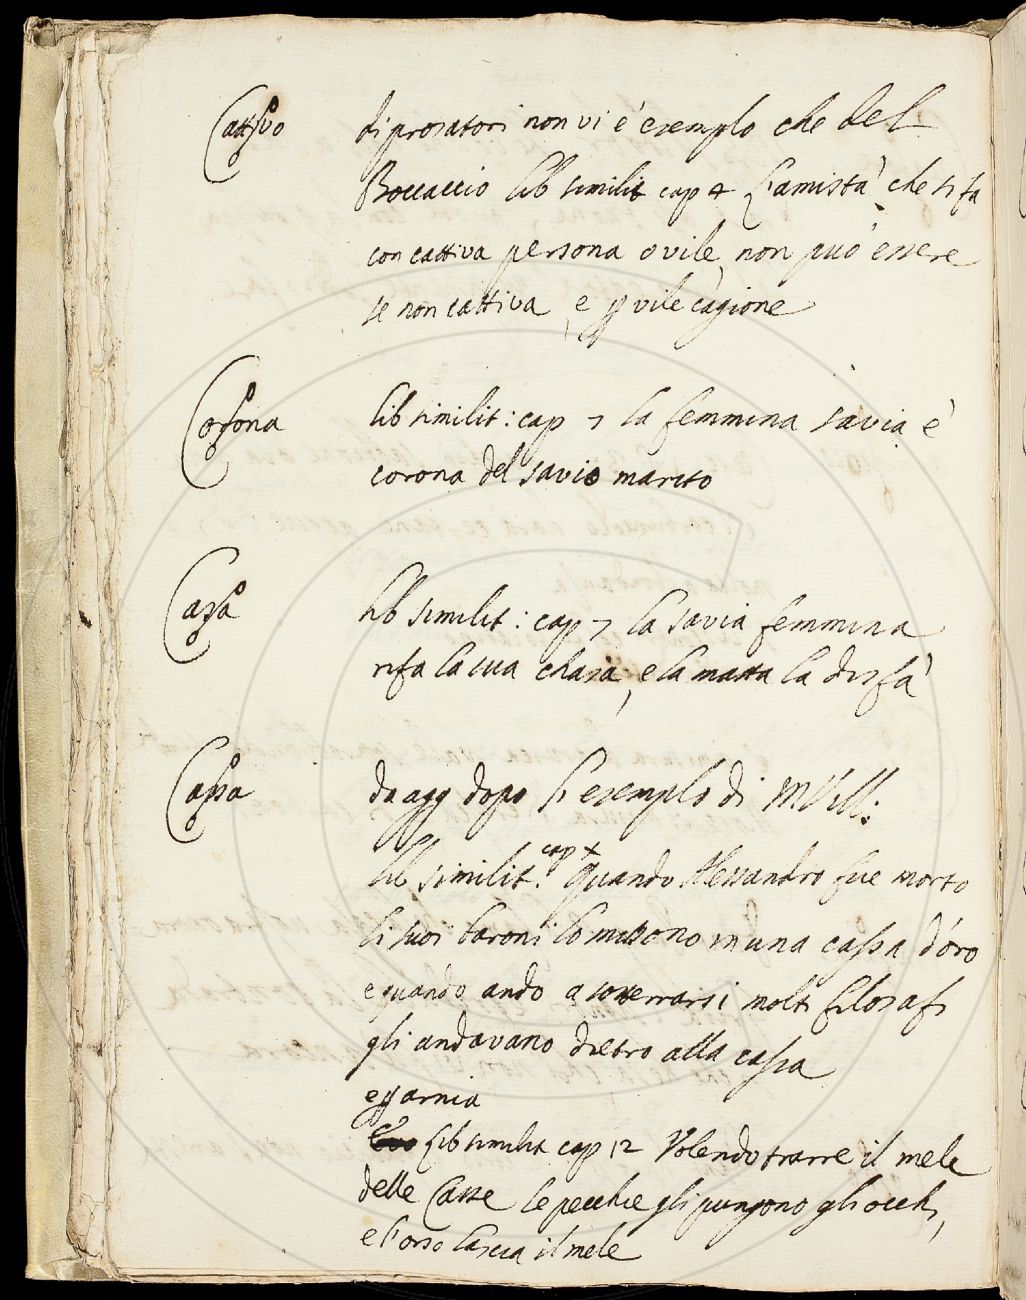 Cattivo di prosatori non vi è esemplo che del
Boccaccio lib similit cap 4 L'amistà che si fa
con cattiva persona o vile non può essere
se non cattiva, e p vile cagione
Corona lib similit: cap 7 la femmina savia è
corona del savio marito
Casa lib similit: cap 7 la savia femmina
rifa la sua chasa, e la matta la disfà
Cassa da agg dopo l'esemplo di MVill:
lib similit. cap x Quando Alessandro fue morto
li suoi baroni lo missono in una cassa d'oro
e quando ando a sotterrarsi molti filosafi
gli andavano dietro alla cassa
e p arnia
lib similit cap 12 Volendo trarre il mele
delle Casse le pecchie gli pungono gli occhi,
e l'orso lascia il mele